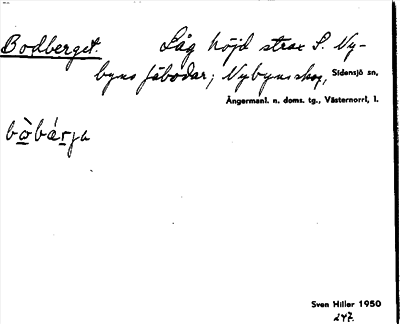 Bodberget. Låg höjd strax S. Ny-
byns fäbodar; Nybyns skog, Sidensjö sn,
Ångermanl. n. doms. tg., Västernorrl, l.
bò̱báṟja
Sven Hiller 1950
247.